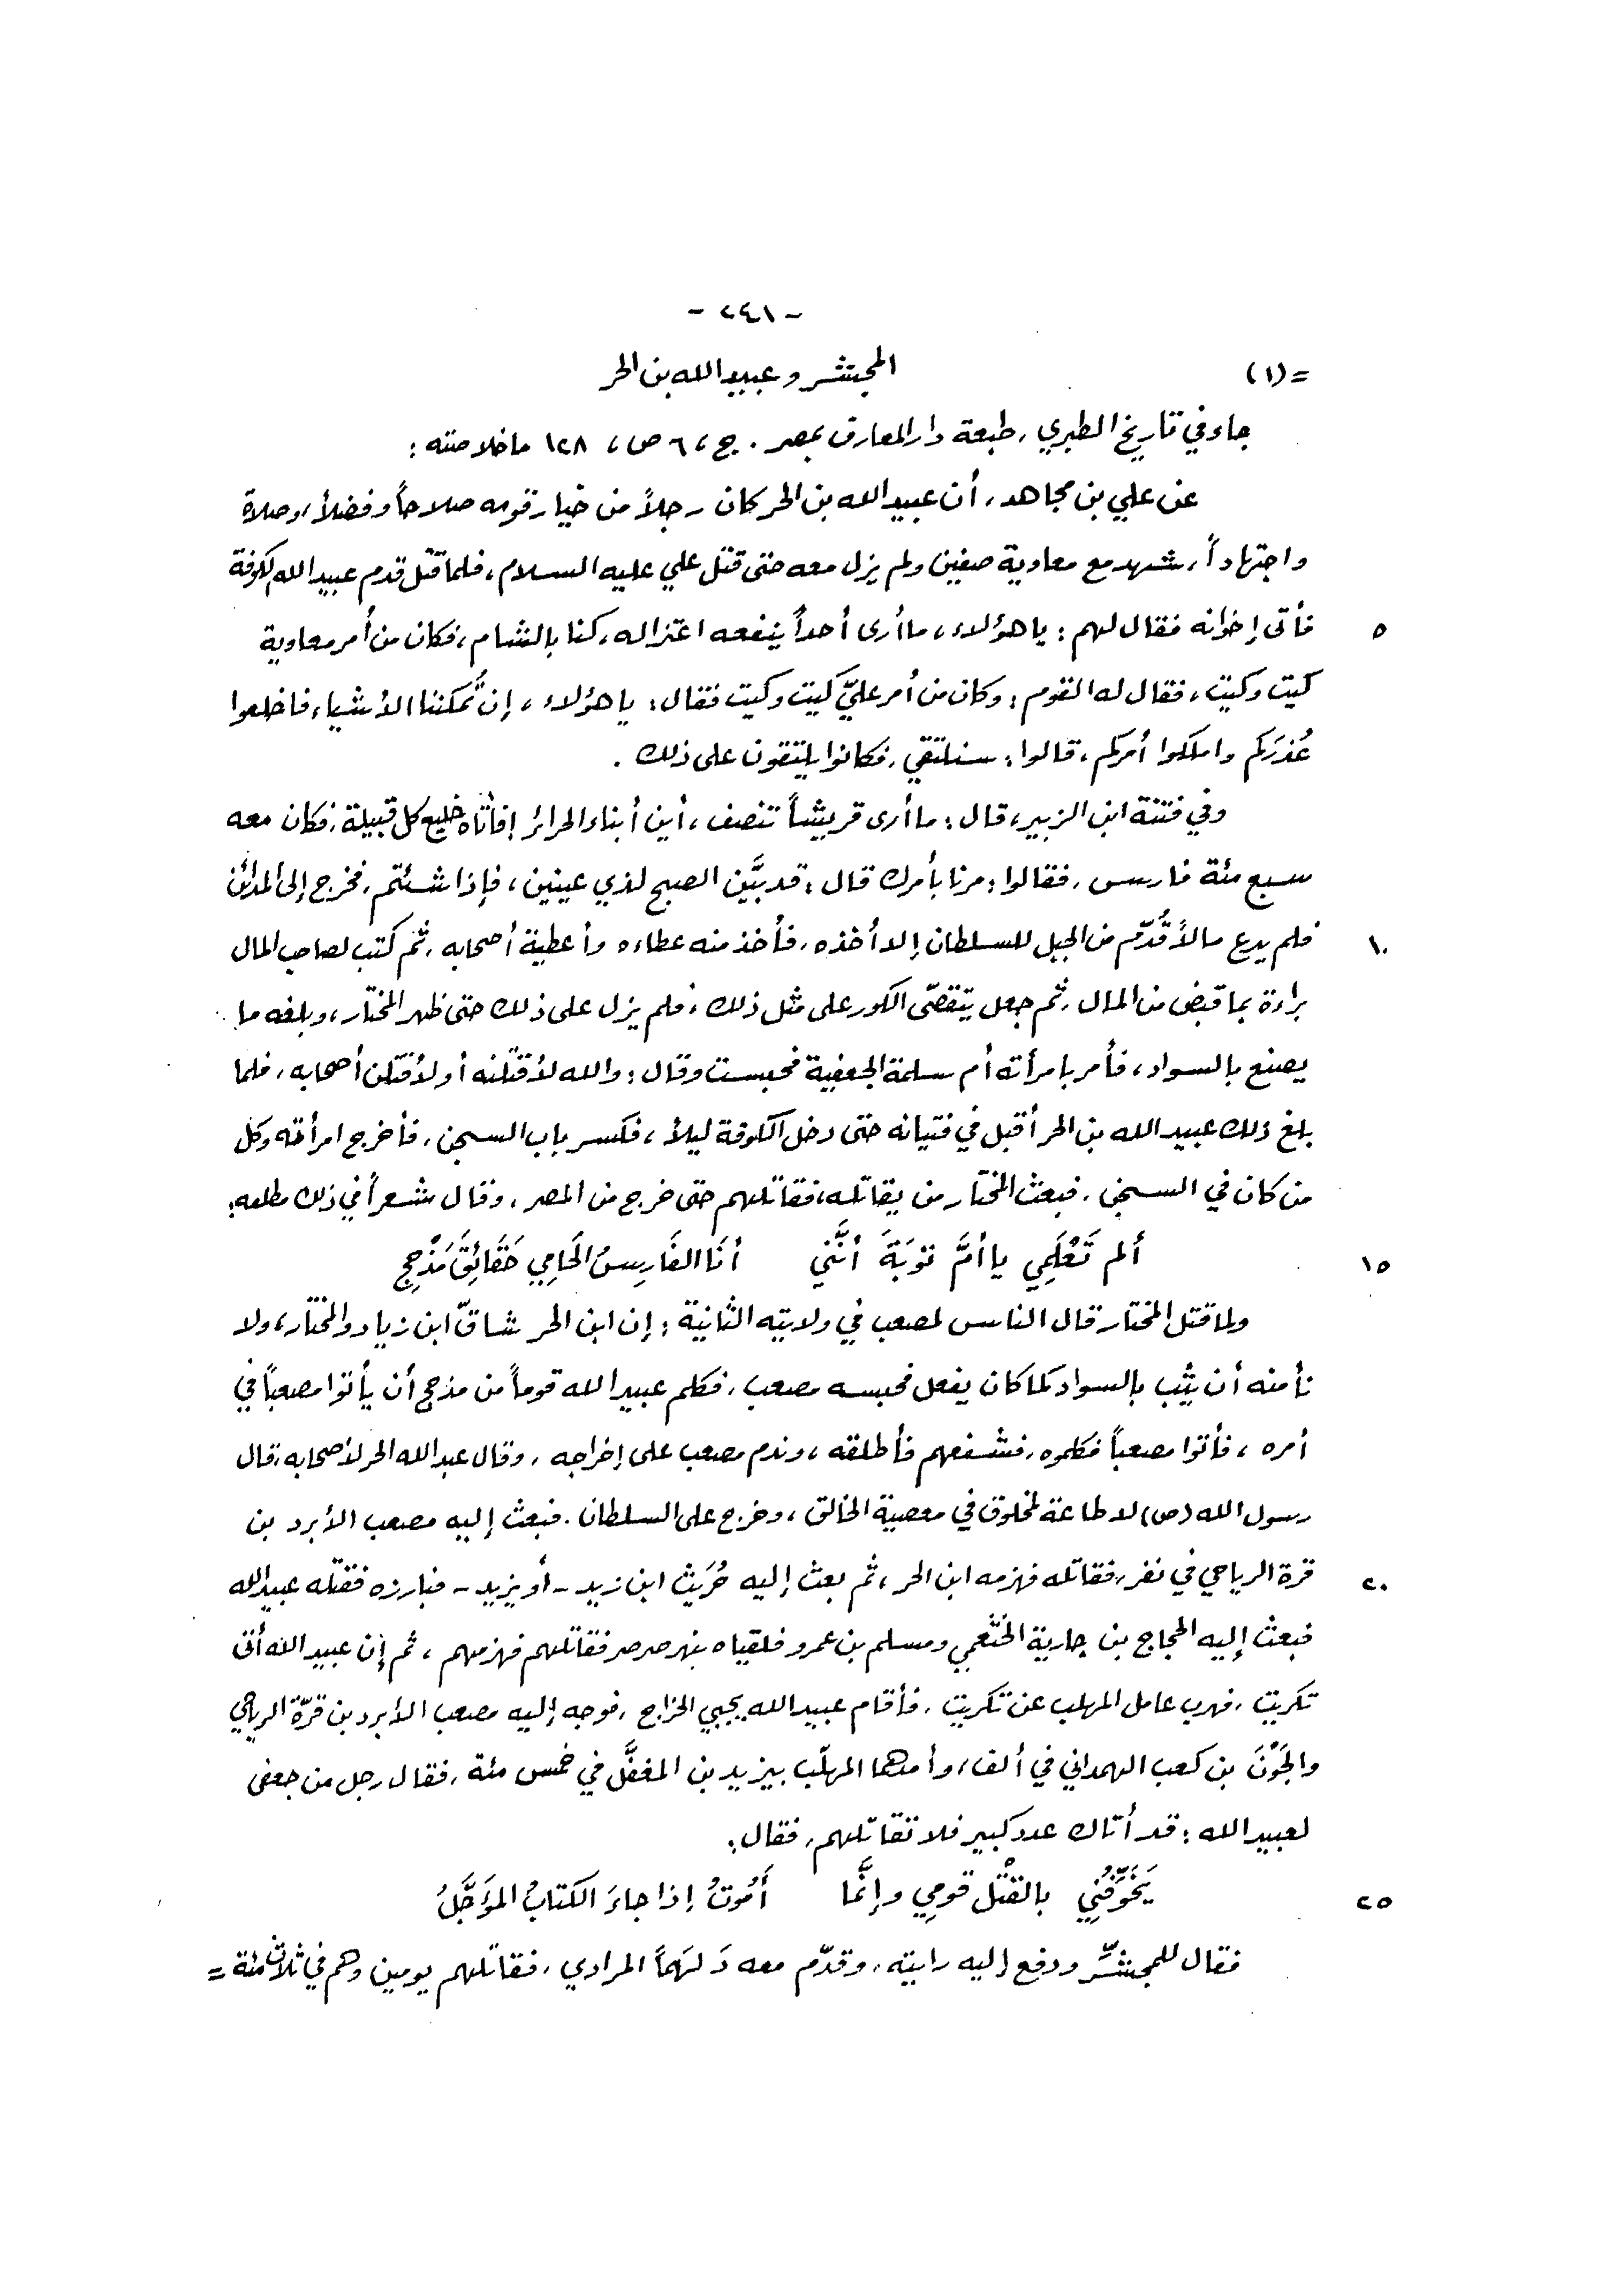 - ٢٤١ -
= (١) المجشر وعبيد الله بن الحر
جاء في تاريخ الطبري، طبعة دار المعارف بمصر. ج، ٦ ص، ١٢٨ ما خلاصته:
عن علي بن مجاهد، أن عبيد الله بن الحر كان رجلاً من خيار قومه صلاحاً وفضلاً، وصلاة
واجتهاداً، شهد مع معاوية صفين ولم يزل معه حتى قتل علي عليه السلام، فلما قتل قدم عبيد الله لكوفة
٥ فأتى إخوانه فقال لهم: يا هؤلاء، ما أرى أحداً ينفعه اعتزاله، كنا بالشام، فكان من أمر معاوية
كيت وكيت، فقال له القوم: وكان من أمر عليّ كيت وكيت فقال: يا هؤلاء، إن تُمكننا الأشياء فاخلعوا
عُذرَكم واملكوا أمركم، قالوا: سنلتقي، فكانوا يلتقون على ذلك.
وفي فتنة ابن الزبير، قال: ما أرى قريشاً تنصف، أين أبناء الحرائر! فأتاه خليع كل قبيلة، فكان معه
سبع مئة فارس، فقالوا: مرنا بأمرك قال: قد بيَّن الصبح لذي عينين، فإذا شئتم، فخرج إلى المدائن
١٠ فلم يدع مالاً قُدّم من الجبل للسلطان إلا أخذه، فأخذ منه عطاءه وأعطية أصحابه، ثم كتب لصاحب المال
براءة بما قبض من المال، ثم جعل يتقصّى الكور على مثل ذلك، فلم يزل على ذلك حتى ظهر المختار، وبلغه ما
يصنع بالسواد، فأمر بامرأته أم سلمة الجعفية فحبست وقال: والله لأقتلنه أو لأقتلن أصحابه، فلما
بلغ ذلك عبيد الله بن الحر أقبل في فتيانه حتى دخل الكوفة ليلاً، فكسر باب السجن، فأخرج امرأته وكل
من كان في السجن، فبعث المختار من يقاتله، فقاتلهم حتى خرج من المصر، وقال شعراً في ذلك مطلعه:
١٥ ألم تَعْلَمِي يا أمَّ توبَةَ أنَّني أنَا الفَارِسُ الحَامِي حَقَائِقَ مَذْحِجِ
ولما قتل المختار قال الناس لمصعب في ولايته الثانية: إن ابن الحر شاقّ ابن زياد والمختار، ولا
نأمنه أن يثب بالسواد كما كان يفعل فحبسه مصعب، فكلم عبيد الله قوماً من مذحج أن يأتوا مصعباً في
أمره، فأتوا مصعباً فكلموه، فشفعهم فأطلقه، وندم مصعب على إخراجه، وقال عبد الله الحر لأصحابه، قال
رسول الله (ص) لا طاعة لمخلوق في معصية الخالق، وخرج على السلطان. فبعث إليه مصعب الأبرد بن
٢٠ قرة الرياحي في نفر، فقاتله فهزمه ابن الحر، ثم بعث إليه حُرَيث ابن زيد - أو يزيد - فبارزه فقتله عبيد الله
فبعث إليه الحجاج بن جارية الخثعمي ومسلم بن عمرو فلقياه بنهر صرصر فقاتلهم فهزمهم، ثم إن عبيد الله أتى
تكريت، فهرب عامل المهلب عن تكريت، فأقام عبيد الله يجبي الخراج، فوجه إليه مصعب الأبرد بن قرّة الرياحي
والجَوْنَ بن كعب الهمداني في ألف، وأمدهما المهلّب بيزيد بن المغفَّل في خمس مئة، فقال رجل من جعفى
لعبيد الله: قد أتاك عدد كبير فلا تقاتلهم، فقال:
٢٥ يَخَوِّفُنِي بالقتْل قومِي وإنَّما أَمُوتُ إذا جاءَ الكتابُ المؤَجَّلُ
فقال للمجشِّر ودفع إليه رايته، وقدّم معه دَلهَماً المرادي، فقاتلهم يومين وهم في ثلاث مئة =